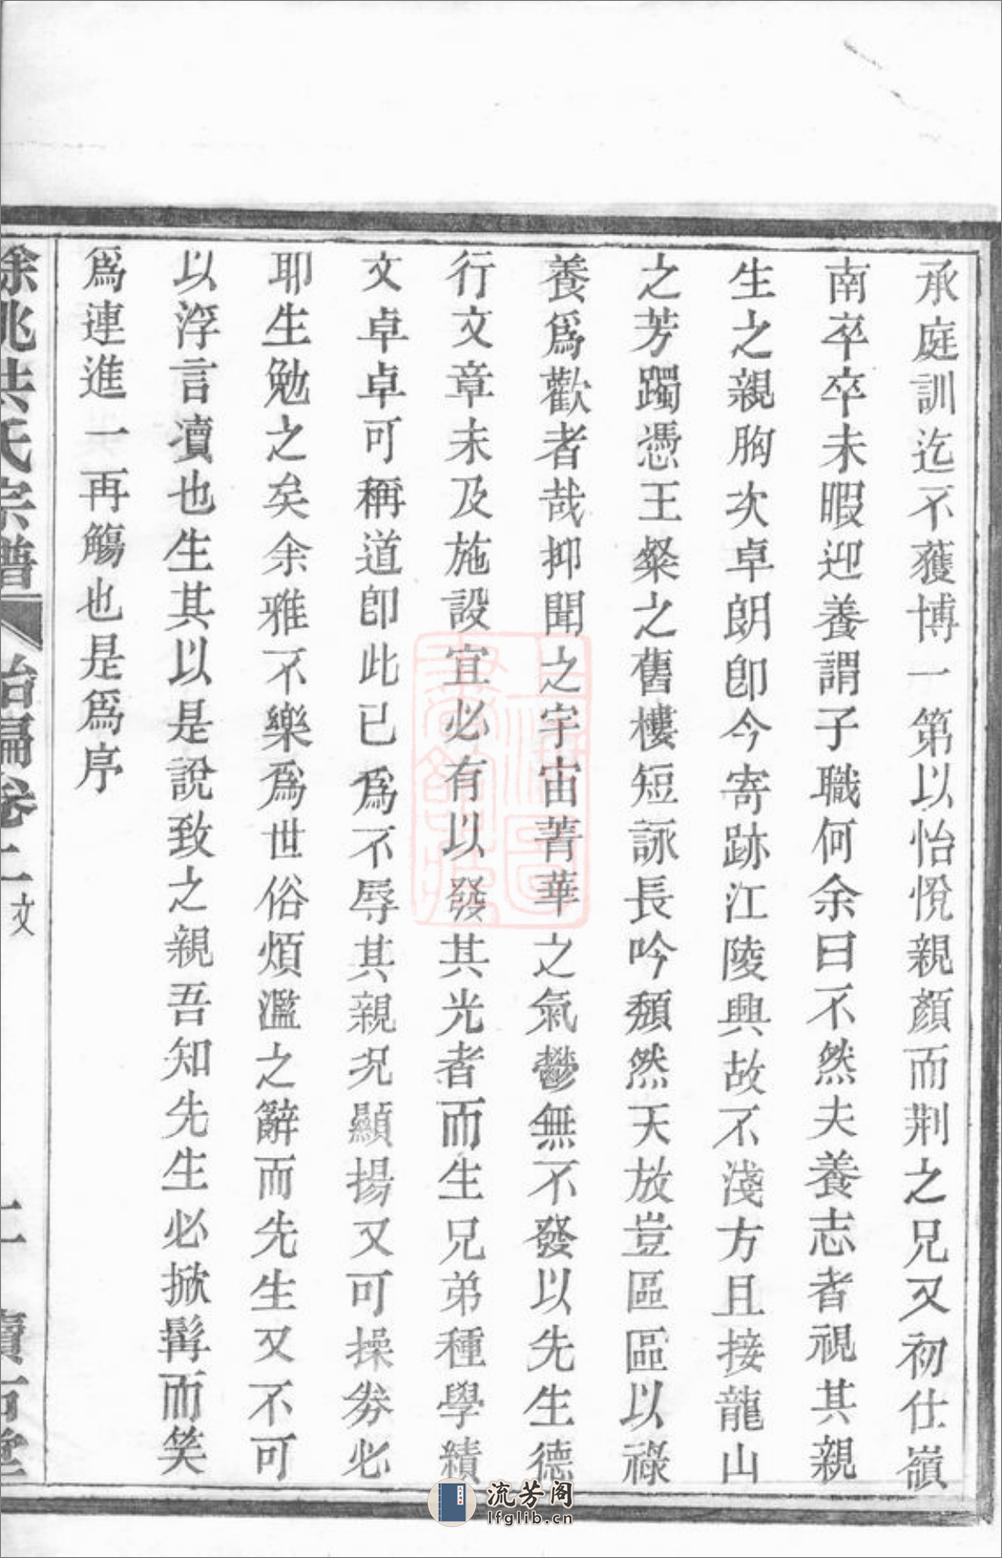 承庭訓迄不獲博一第以怡悅親顏而荆之兄又初仕嶺
南卒卒未暇迎養謂子職何余曰不然夫養志者視其親
生之親胸次卓朗卽今寄跡江陵興故不淺方且接龍山
之芳躅憑王粲之舊樓短詠長吟頹然天放豈區區以祿
養爲歡者哉抑聞之宇宙菁華之氣鬱無不發以先生德
行文章未及施設宜必有以發其光者而生兄弟種學績
文卓卓可稱道卽此已爲不辱其親况顯揚又可操劵必
耶生勉之矣余雅不樂爲世俗煩濫之辭而先生又不可
以浮言瀆也生其以是說致之親吾知先生必掀髯而笑
爲連進一再觴也是爲序
餘姚洪氏宗譜 貽編卷二 文
流芳阁
lfglib.cn